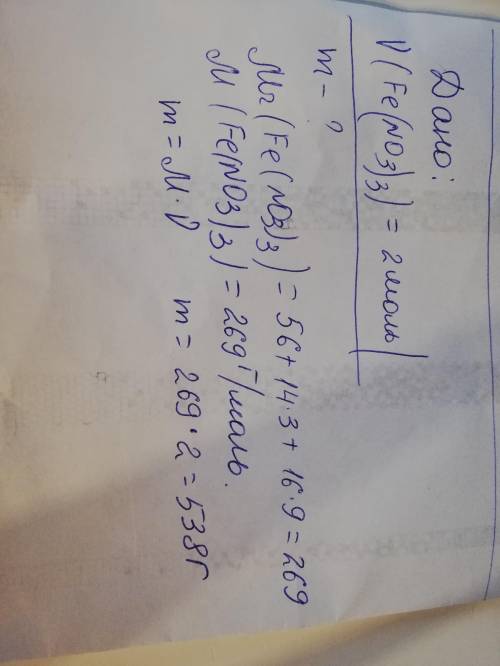 Дано:
ν(Fe(NO3)3) = 2моль
m - ?
Mr(Fe(NO3)3) = 56 + 14·3 + 16·9 = 269
M(Fe(NO3)3) = 269 г/моль.
m = M·ν m = 269·2 = 538г